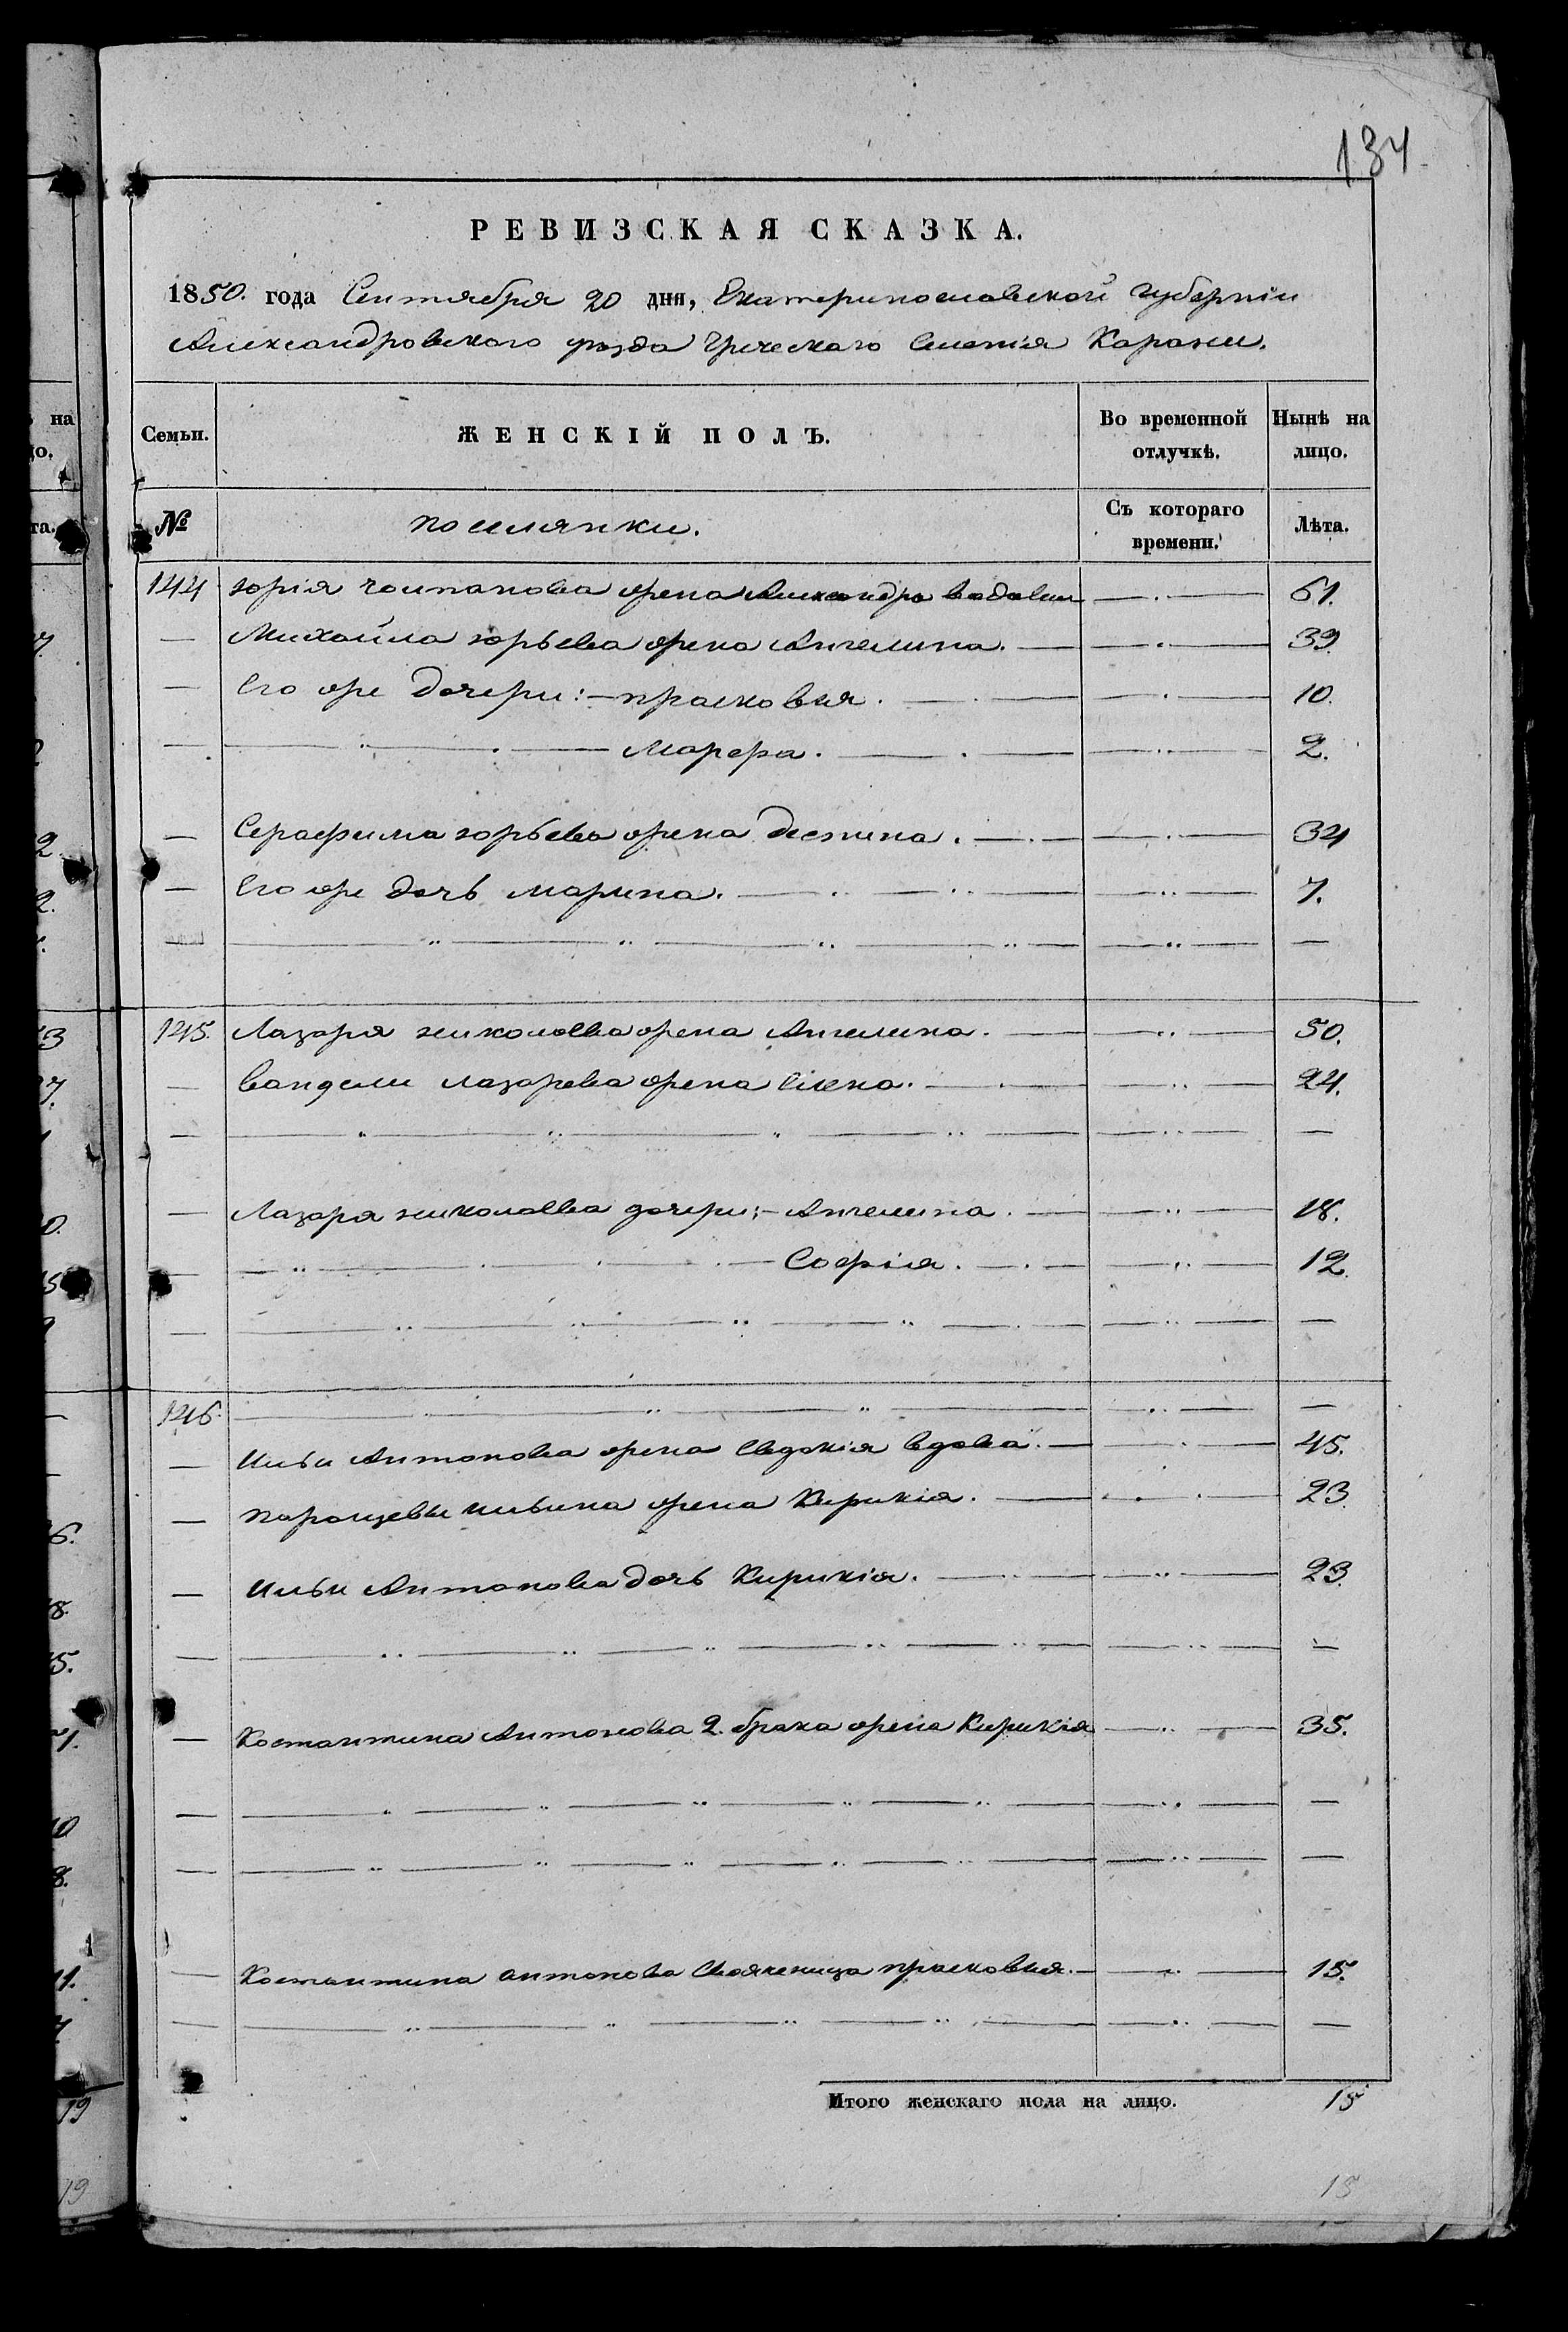 134
РЕВИЗСКАЯ СКАЗКА.
1850. года Сентября 20 дня, Екатеринославской губерніи
Александровского уезда Греческаго Селенія Карани.
Семьи. ЖЕНСКІЙ ПОЛЪ. Во временной отлучкѣ. Нынѣ на лицо.
№ поселянки. Съ котораго времени. Лѣта.
144 юрія жена Александра 61.
— Михайла юрьева жена Ангелина. 39.
— Его же дочери: – прасковия. 10.
— Марфа. 2.
— Серафима юрьева жена деспина. 34
— Его же дочь марина. 7.
145. Лазаря николаева жена Ангелина. 50.
— вангели лазарева жена Елена. 24.
— Лазаря николаева дочери: – Ангелина. 18.
— Софія. 12.
146.
— Ильи Антонова жена Евдокія вдова. 45.
— ильина жена Кирикія. 23.
— Ильи Антонова дочь Кирикія. 23.
— Костантина Антонова 2. брака жена Кирикія 35.
— Костантина антонова Свояченица прасковия. 15.
Итого женскаго пола на лицо. 15
15